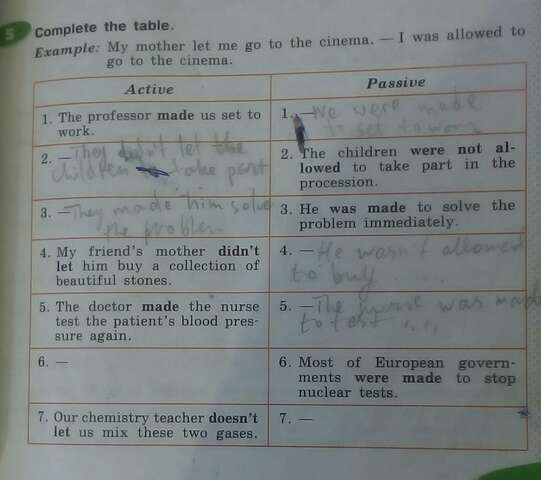 5 Complete the table.
Example: My mother let me go to the cinema. — I was allowed to
go to the cinema.
Active
Passive
1. The professor made us set to
work.
1. — We were made
to set to work
2. — They didn't let the
children take part
2. The children were not al-
lowed to take part in the
procession.
3. — They made him solve
the problem
3. He was made to solve the
problem immediately.
4. My friend's mother didn't
let him buy a collection of
beautiful stones.
4. — He wasn't allowed
to buy .....
5. The doctor made the nurse
test the patient's blood pres-
sure again.
5. — The nurse was made
to test ....
6. —
6. Most of European govern-
ments were made to stop
nuclear tests.
7. Our chemistry teacher doesn't
let us mix these two gases.
7. —